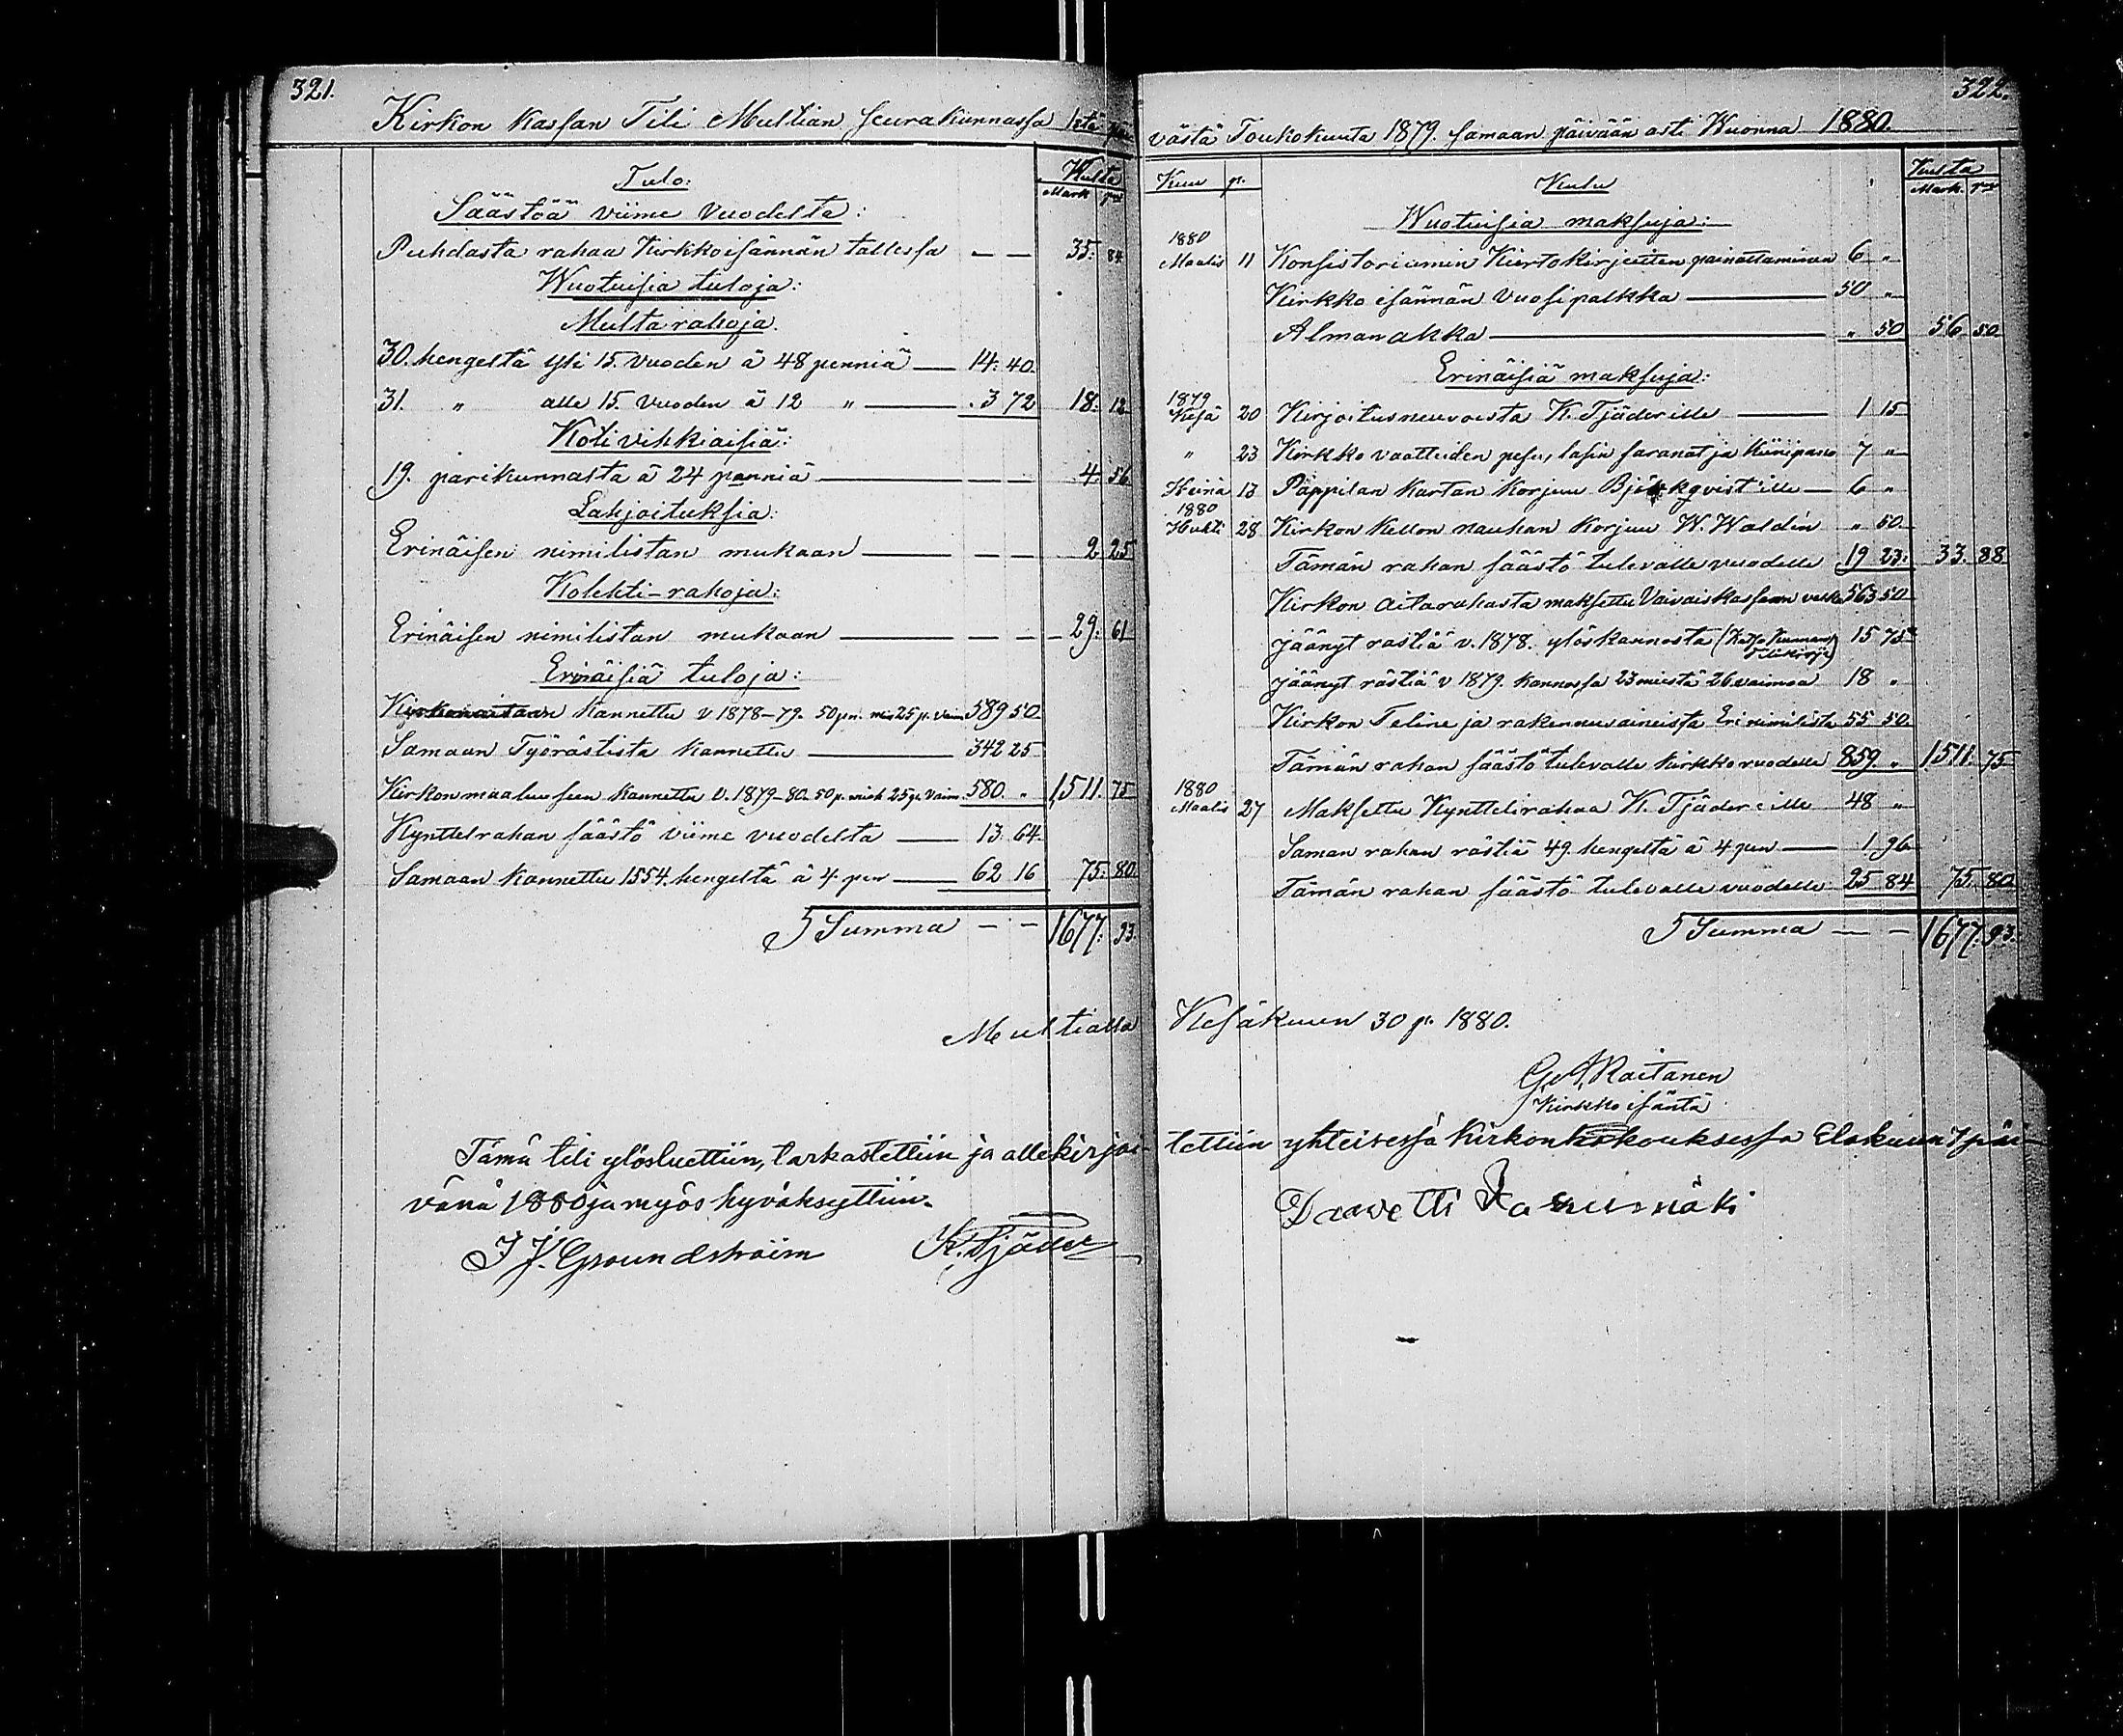 321.
Kirkon kassan Tili Multian seurakunnassa 1stä päi
Tulo:
Kulta
Mark pni
Säästöä viime vuodelta:
Puhdasta rahaa Kirkkoisännän tallessa — — 35: 84
Wuotuisia tuloja:
Multarahoja.
30. hengeltä yli 15. vuoden á 48 penniä — 14: 40.
31. " alle 15. vuoden á 12 " — 3 72 18: 12
Kotivihkiäisiä:
19. parikunnasta á 24 penniä — 4: 56
Lahjoituksia:
Erinäisen nimilistan mukaan — 2 25
Kolehti-rahoja:
Erinäisen nimilistan mukaan — 29: 61
Erinäisiä tuloja:
Kirkonaitaan kannettu v 1878–79. 50 pn. mie 25 p. vaim 589 50
Samaan Työrästistä kannettu — 342 25
Kirkon maaluseen kannettu v. 1879–80. 50 p. mieh 25 p. vaim. 580. " 1,511. 75
Kynttelrahan säästö viime vuodelta — 13. 64.
Samaan kannettu 1554. hengeltä á 4. pen — 62 16 75: 80.
Summa — — 1677: 93.
Multialla
Tämä tili ylösluettiin, tarkastettiin ja allekirjoi-
vänä 1880 ja myös hyväksyttiin.
K. Tjäder
322.
västä Toukokuuta 1879. samaan päivään asti Wuonna 1880.
Kuu p.
Kulu
Kulta
Mark. pni
Wuotuisia maksuja:
1880
Maalis 11 Konsistoriumin Kiertokirjeitten painattaminen 6 "
Kirkko isännän vuosipalkka — 50 "
Almanakka — " 50 56 50.
Erinäisiä maksuja:
1879
Kesä 20 Kirjoitusneuvoista K. Tjäderille — 1 15
" 23 Kirkko vaatteiden pesu, lasin saranat ja kiinipano 7 "
Heinä 13 Pappilan kartan korjuu Björkqvist'ille — 6 "
1880
Huhti 28 Kirkon kellon nauhan korjuu W. Waldén " 50
Tämän rahan säästö tulevalle vuodelle 19 23. 33. 88
Kirkon aitarahasta maksettu Vaivaiskassaan velka 563 50
Jäänyt rästiä v. 1878. ylöskannosta (Katso Kunnan Tilikirja) 15 75
Jäänyt rästiä v 1879. kannossa 23 miestä 26 vaimoa 18 "
Kirkon Teline ja rakennusaineista Eri nimilista 55 50.
Tämän rahan säästö tulevalle kirkko vuodelle 859. " 1511. 75
1880
Maalis 27 Maksettu Kynttelirahaa K. Tjäderille 48 "
Saman rahan rästiä 49. hengeltä á 4 pen — 1. 96
Tämän rahan säästö tulevalle vuodelle 25 84 75. 80
Summa — — 1677. 93.
Kesäkuun 30 p. 1880.
G. A. Raitanen
Kirkko isäntä
tettiin yhteisessä kirkonkokouksessa Elokuun 1 päi-